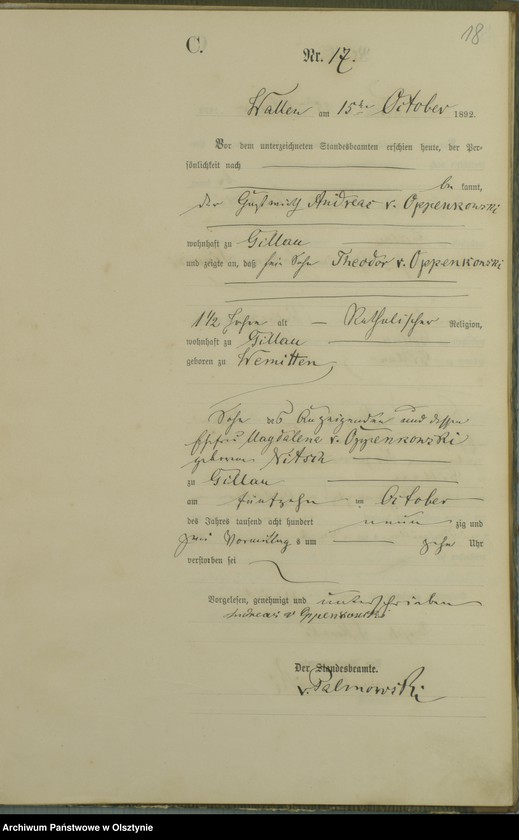 18
C.
Nr. 17.
Wallen am 15ten October 1892.
Vor dem unterzeichneten Standesbeamten erschien heute, der Per-
sönlichkeit nach
be kannt,
der Gastwirth Andreas v. Oppenkowski
wohnhaft zu Gillau
und zeigte an, daß sein Sohn Theodor v. Oppenkowski
1 1/2 Jahre alt Katholischer Religion,
wohnhaft zu Gillau
geboren zu Wemitten
Sohn des Anzeigenden und dessen
Ehefrau Magdalene v. Oppenkowski
geborene Nitsch
zu Gillau
am fünfzehn ten October
des Jahres tausend acht hundert neun zig und
zwei Vormittag s um zehn Uhr
verstorben sei
Vorgelesen, genehmigt und unterschrieben
Andreas v Oppenkowski
Der Standesbeamte.
v. Palmowski
Archiwum Państwowe w Olsztynie